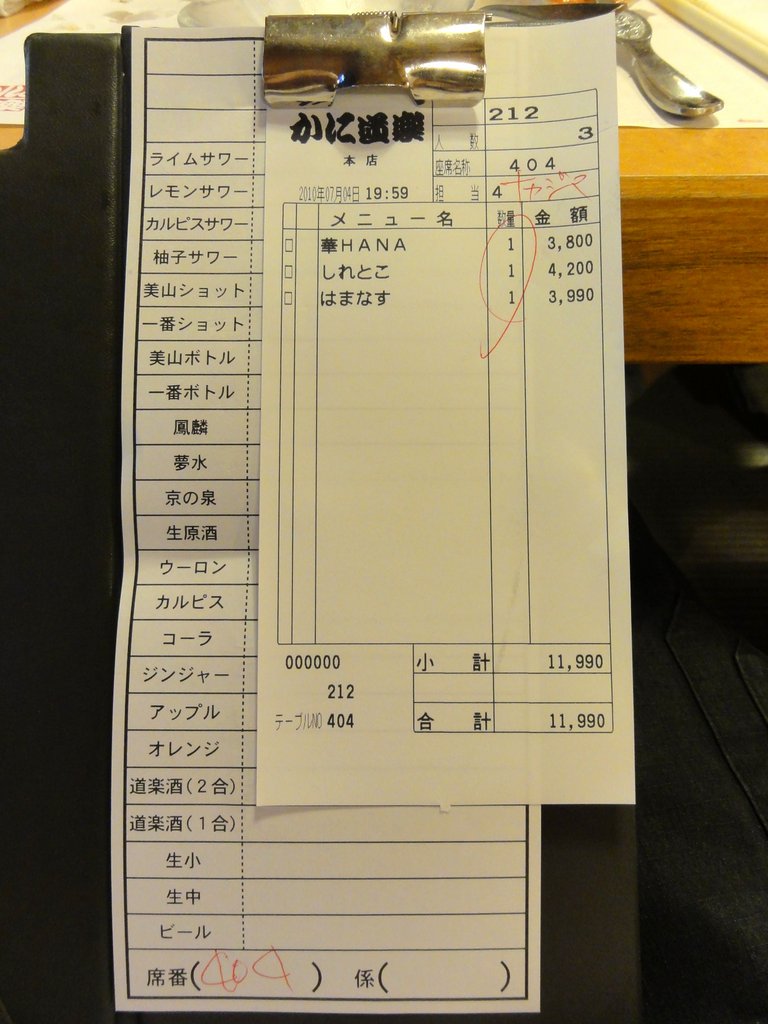 かに道楽
本店
2010年07月04日 19:59
212
人数 3
座席名称 404
担当 4
メニュー名 数量 金額
華HANA 1 3,800
しれとこ 1 4,200
はまなす 1 3,990
000000
212
テーブルNO 404
小計 11,990
合計 11,990
ライムサワー
レモンサワー
カルピスサワー
柚子サワー
美山ショット
一番ショット
美山ボトル
一番ボトル
鳳麟
夢水
京の泉
生原酒
ウーロン
カルピス
コーラ
ジンジャー
アップル
オレンジ
道楽酒(2合)
道楽酒(1合)
生小
生中
ビール
席番(404) 係( )